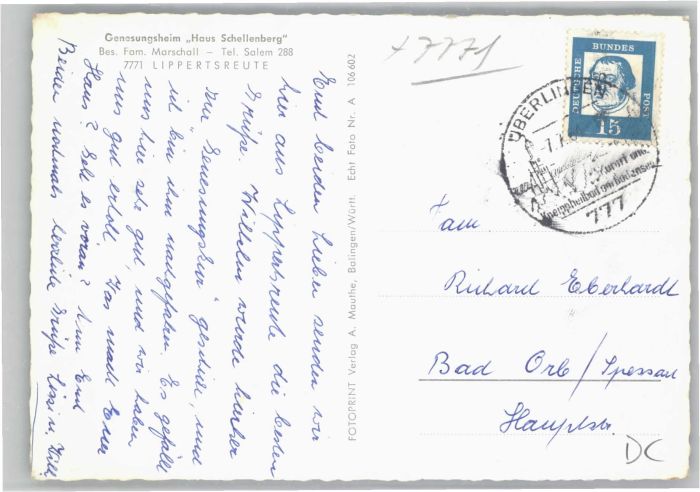 Genesungsheim „Haus Schellenberg"
Bes. Fam. Marschall — Tel. Salem 288
7771 LIPPERTSREUTE
Euch beiden Lieben senden wir
hier aus Lippertsreute die besten
Grüße. Wilhelm wurde hierher
zur "Genesungskur" geschickt, und
ich bin ihm nachgefahren. Es gefällt
uns hier sehr gut, und wir haben
uns gut erholt. Was macht Euer
Haus? Geht es voran? Nun Euch
Beiden nochmals herzliche Grüße Lissi u. Willi
FOTOPRINT Verlag A. Mauthe, Balingen/Württ. Echt Foto Nr. A 106602
+7771
DEUTSCHE BUNDES POST
15
ÜBERLINGEN
Kneippheilbad am Bodensee
777
Fam
Richard Eberhardt
Bad Orb/Spessart
Hauptstr.
DC